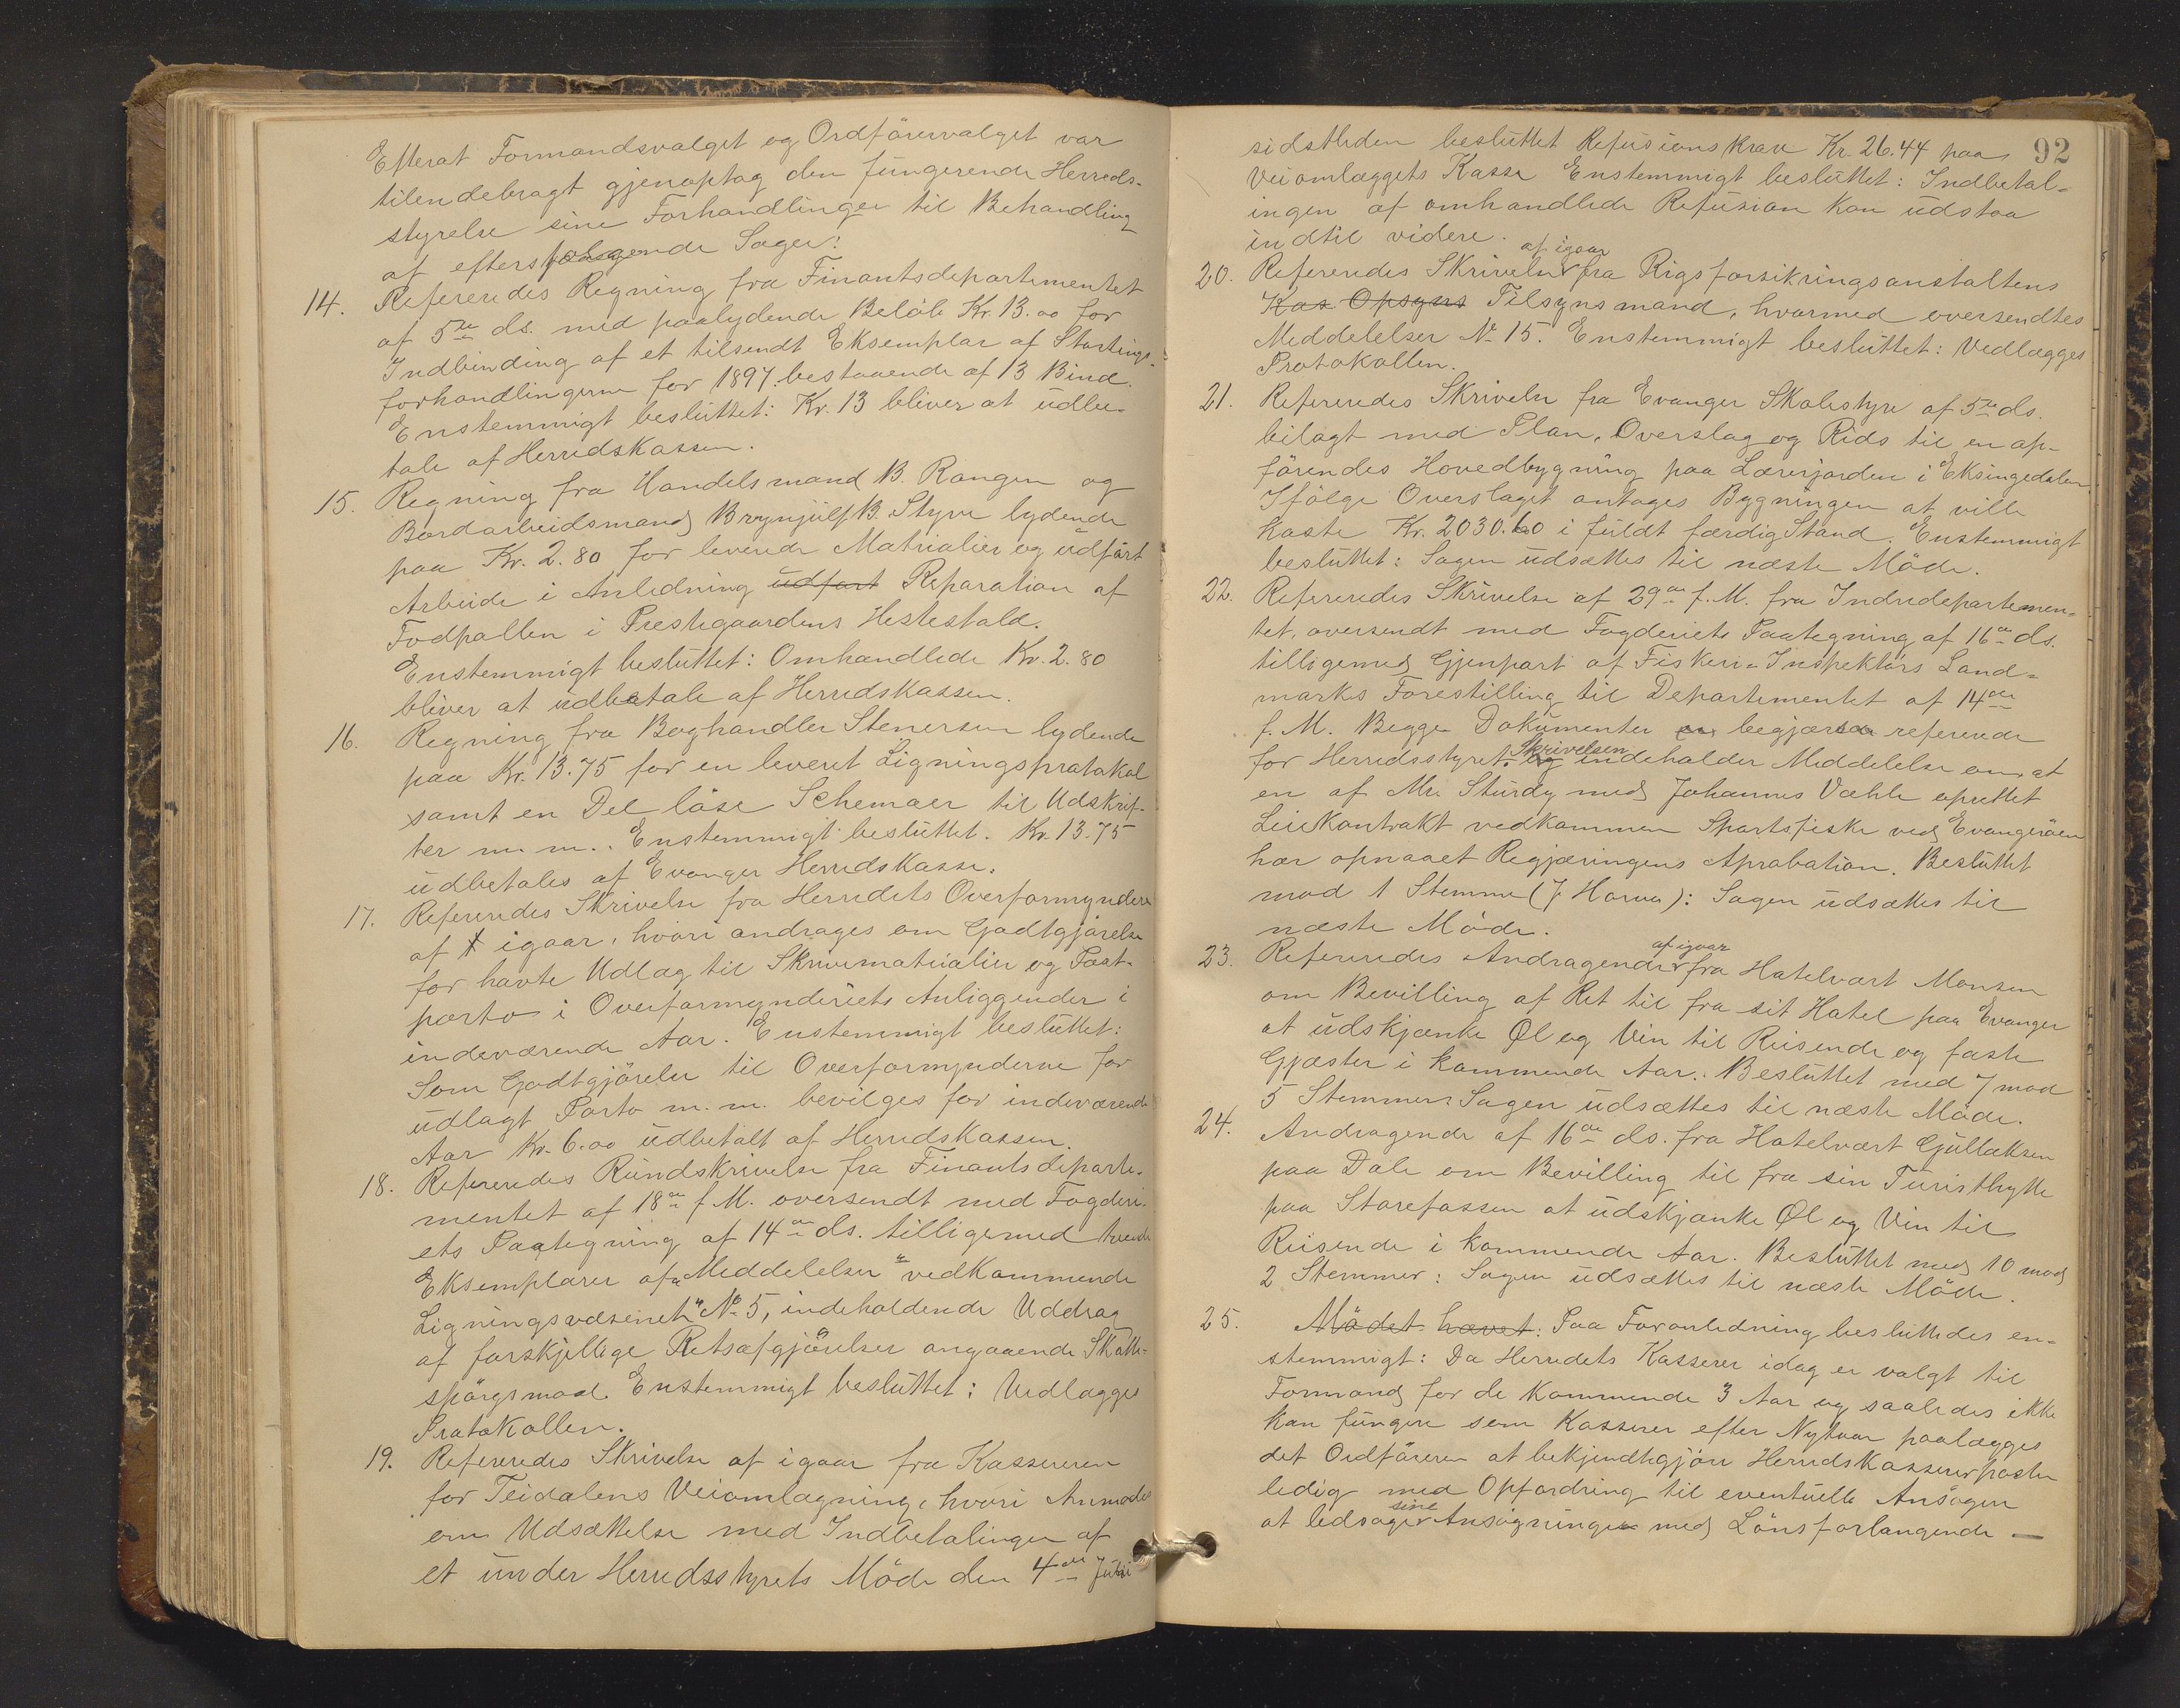 Efterat Formandsvalget og Ordförervalget var
tilendebragt gjenoptog den fungerende Herreds-
styrelse sine Forhandlinger til Behandling
af efterfølgende Sager:
14. Refereredes Regning fra Finantsdepartementet
af 5te ds. med paalydende Beløb Kr. 13.00 for
Indbinding af et tilsendt Eksemplar af Stortings-
forhandlingerne for 1897 bestaaende af 13 Bind.
Enstemmigt besluttet: Kr. 13 bliver at udbe-
tale af Herredskassen.
15. Regning fra Handelsmand B. Rongen og
Bordarbeidsmand Brynjulf B. Styve lydende
paa Kr. 2.80 for leverede Matrialier og udført
Arbeide i Anledning udført Reparation af
Fodpallen i Prestegaardens Hestestald.
Enstemmigt besluttet: Omhandlede Kr. 2.80
bliver at udbetale af Herredskassen.
16. Regning fra Boghandler Stenersen lydende
paa Kr. 13.75 for en leveret Ligningsprotokol
samt en Del löse Schemaer til Udskrif-
ter m. m. Enstemmigt besluttet. Kr. 13.75
udbetales af Evanger Herredskasse.
17. Refereredes Skrivelse fra Herredets Overformyndere
af igaar, hvori andrages om Godtgjörelse
for havte Udlæg til Skrivematrialier og Post-
porto i Overformynderiets Anliggender i
indeværende Aar. Enstemmigt besluttet:
Som Godtgjörelse til Overformynderne for
udlagt Porto m. m. bevilges for indeværende
Aar Kr. 6.00 udbetalt af Herredskassen.
18. Refereredes Rundskrivelse fra Finantsdeparte-
mentet af 18de f. M. oversendt med Fogderi-
ets Paategning af 14de ds. tilligemed tvende
Eksemplarer af "Meddelelser" vedkommende
Ligningsvæsenet" No 5, indeholdende Uddrag
af forskjellige Retsafgjörelser angaaende Skatte-
spörgsmaal. Enstemmigt besluttet: Vedlægges
Protokollen.
19. Refereredes Skrivelse af igaar fra Kassereren
for Teidalens Veiomlægning, hvori Anmodes
om Udsættelse med Indbetalingen af
et under Herredsstyrets Möde den 4de Juli
92
sidstleden besluttet Refusionskrav Kr. 26.44 paa
Veiomlæggets Kasse Enstemmigt besluttet: Indbetal-
ingen af omhandlede Refusion kan udstaa
indtil videre.
20. Refereredes Skrivelse af igaar fra Rigsforsikringsanstaltens
Kas Opsyns Tilsynsmand, hvormed oversendtes
Meddelelser No 15. Enstemmigt besluttet: Vedlægges
Protokollen.
21. Refereredes Skrivelse fra Evanger Skolestyre af 5te ds.
bilagt med Plan, Overslag og Rids til en op-
förendes Hovedbygning paa Lærerjorden i Eksingedalen.
Ifölge Overslaget antages Bygningen at ville
koste Kr. 2030.60 i fuldt færdig Stand. Enstemmigt
besluttet: Sagen udsættes til næste Möde.
22. Refereredes Skrivelse af 29de f. M. fra Indredepartemen-
tet, oversendt med Fogderiets Paategning af 16de ds.
tilligemed Gjenpart af Fiskeri-Inspektörs Land-
marks Forestilling til Departementet af 14de
f. M. Begge Dokumenter begjæres refererede
for Herredsstyret. og Skrivelsen indeholder Meddelelse om at
en af Mr. Sturdy med Johannes Væhle oprettet
Leiekontrakt vedkommen Sportsfiske ved Evangeröen
har opnaaet Regjæringens Aprobation. Besluttet
mod 1 Stemme (J. Horvei): Sagen udsættes til
næste Möde.
23. Refereredes Andragende af igaar fra Hotelvært Monsen
om Bevilling af Ret til fra sit Hotel paa Evanger
at udskjænke Øl og Vin til Reisende og faste
Gjæster i kommende Aar. Besluttet med 7 mod
5 Stemmer: Sagen udsættes til næste Möde.
24. Andragende af 16de ds. fra Hotelvært Gulleksen
paa Dale om Bevilling til fra sin Turisthytte
paa Storefossen at udskjænke Øl og Vin til
Reisende i kommende Aar. Besluttet med 10 mod
2 Stemmer: Sagen udsættes til næste Möde.
25. Mödet hævet. Paa Foranledning besluttedes en-
stemmigt: Da Herredets Kasserer idag er valgt til
Formand for de kommende 3 Aar og saaledes ikke
kan fungere som Kasserer efter Nytaar paalægges
det Ordföreren at bekjendtgjöre Herredskassererposten
ledig med Opfordring til eventuelle Ansögere
at ledsage sine Ansögninger med Lönsforlangende —